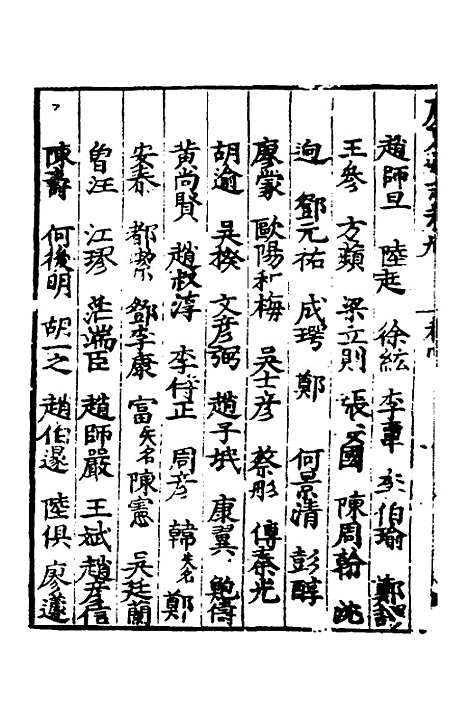 趙師旦 陸起 徐絃 李車 李伯瑜 鄭
王參 方蘋 梁立則 張文國 陳周翰 沈
逈 鄧元祐 成瑻 鄭 何景清 彭醇
廖蒙 歐陽和梅 吳士彥 蔡彤 傅秦光
胡逾 吳揆 文彥弼 趙子珉 康翼 鮑儔
黃尚賢 趙叔淳 李侍正 周彥 韓失名 鄭
安春 都潔 鄧李康 富失名 陳憲 吳廷蘭
曾汪 江璆 茫端臣 趙師嚴 王斌 趙彥信
陳壽 何俊明 胡一之 趙伯逷 陸俱 廖遵